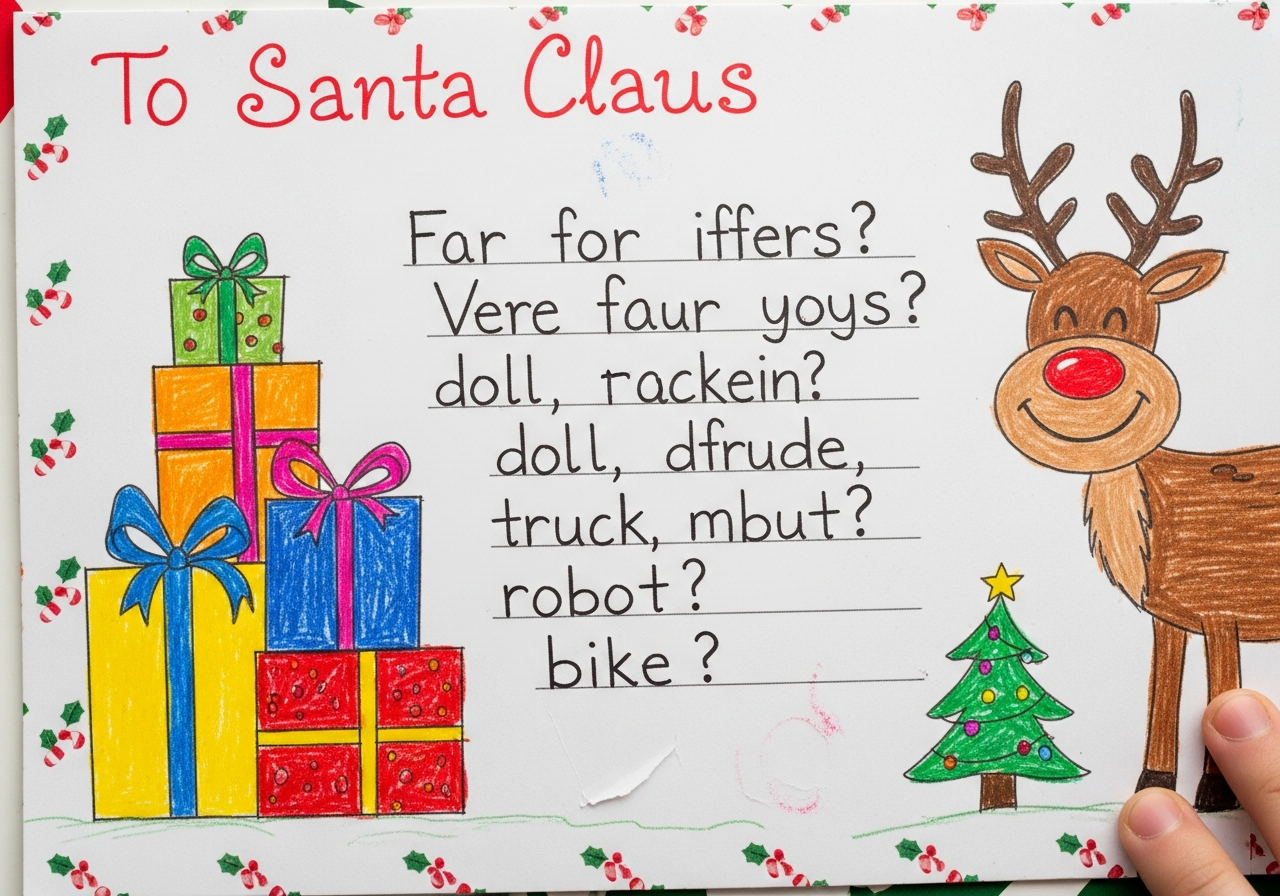 To Santa Claus
Far for iffers?
Vere faur yoys?
doll, rackein?
doll, dfrude,
truck, mbut?
robot?
bike?